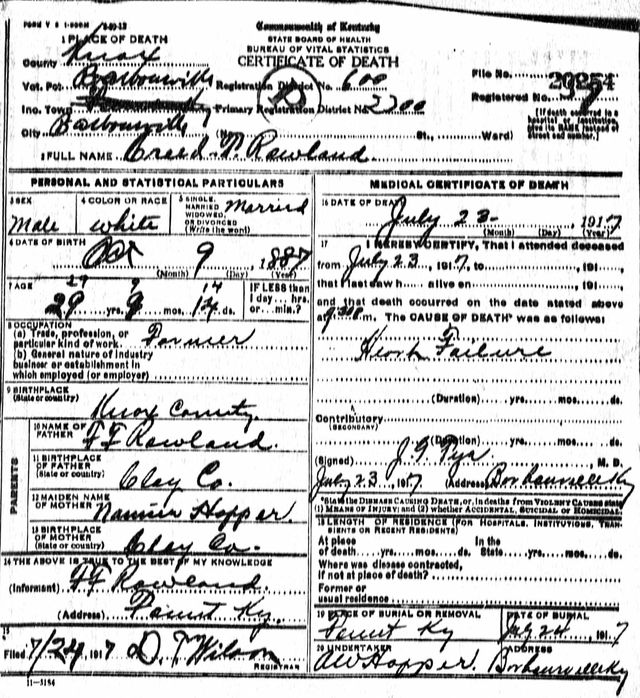 FORM V S 1-
Commonwealth of Kentucky
STATE BOARD OF HEALTH
BUREAU OF VITAL STATISTICS
CERTIFICATE OF DEATH
1 PLACE OF DEATH
County Knox
Vot. Pct. Barbourville Registration District No. 600
File No. 20254
Inc. Town Primary Registration District No. 2200
Registered No. 9
City Barbourville (No. St., Ward)
[If death occurred in a hospital or institution, give its NAME instead of street and number.]
2 FULL NAME Creed N. Rowland
PERSONAL AND STATISTICAL PARTICULARS
3 SEX Male
4 COLOR OR RACE white
5 SINGLE, MARRIED WIDOWED, OR DIVORCED (Write the word) Married
6 DATE OF BIRTH Oct 9, 1887
(Month) (Day) (Year)
7 AGE 29 9 14
29 yrs. 9 mos. 14 ds.
IF LESS than 1 day... hrs. or... min.?
8 OCCUPATION
(a) Trade, profession, or particular kind of work. Farmer
(b) General nature of industry business or establishment in which employed (or employer)
9 BIRTHPLACE (State or country) Knox County.
PARENTS
10 NAME OF FATHER F F Rowland.
11 BIRTHPLACE OF FATHER (State or country) Clay Co.
12 MAIDEN NAME OF MOTHER Nannie Hopper.
13 BIRTHPLACE OF MOTHER (State or country) Clay Co.
14 THE ABOVE IS TRUE TO THE BEST OF MY KNOWLEDGE
(Informant) F F Rowland.
(Address) Ky.
15
Filed 7/24, 1917 D. T. Wilson
REGISTRAR
11-3184
MEDICAL CERTIFICATE OF DEATH
16 DATE OF DEATH July 23, 1917
(Month) (Day) (Year)
17 I HEREBY CERTIFY, That I attended deceased
from July 23, 1917, to, 191,
that I last saw h alive on, 191,
and that death occurred on the date stated above
at m. The CAUSE OF DEATH* was as follows:
Heart Failure
(Duration) yrs. mos. ds.
Contributory (SECONDARY)
(Duration) yrs. mos. ds.
(Signed) J. G. M. D.
July 23, 1917 (Address) Barbourville Ky
*State the DISEASE CAUSING DEATH, or, in deaths from VIOLENT CAUSES state
(1) MEANS OF INJURY; and (2) whether ACCIDENTAL, SUICIDAL or HOMICIDAL.
18 LENGTH OF RESIDENCE (FOR HOSPITALS, INSTITUTIONS, TRANSIENTS OR RECENT RESIDENTS)
At place of death yrs. mos. ds. In the State yrs. mos. ds.
Where was disease contracted, if not at place of death?
Former or usual residence
19 PLACE OF BURIAL OR REMOVAL Ky
DATE OF BURIAL July 24, 1917
20 UNDERTAKER A W Hopper.
ADDRESS Barbourville Ky